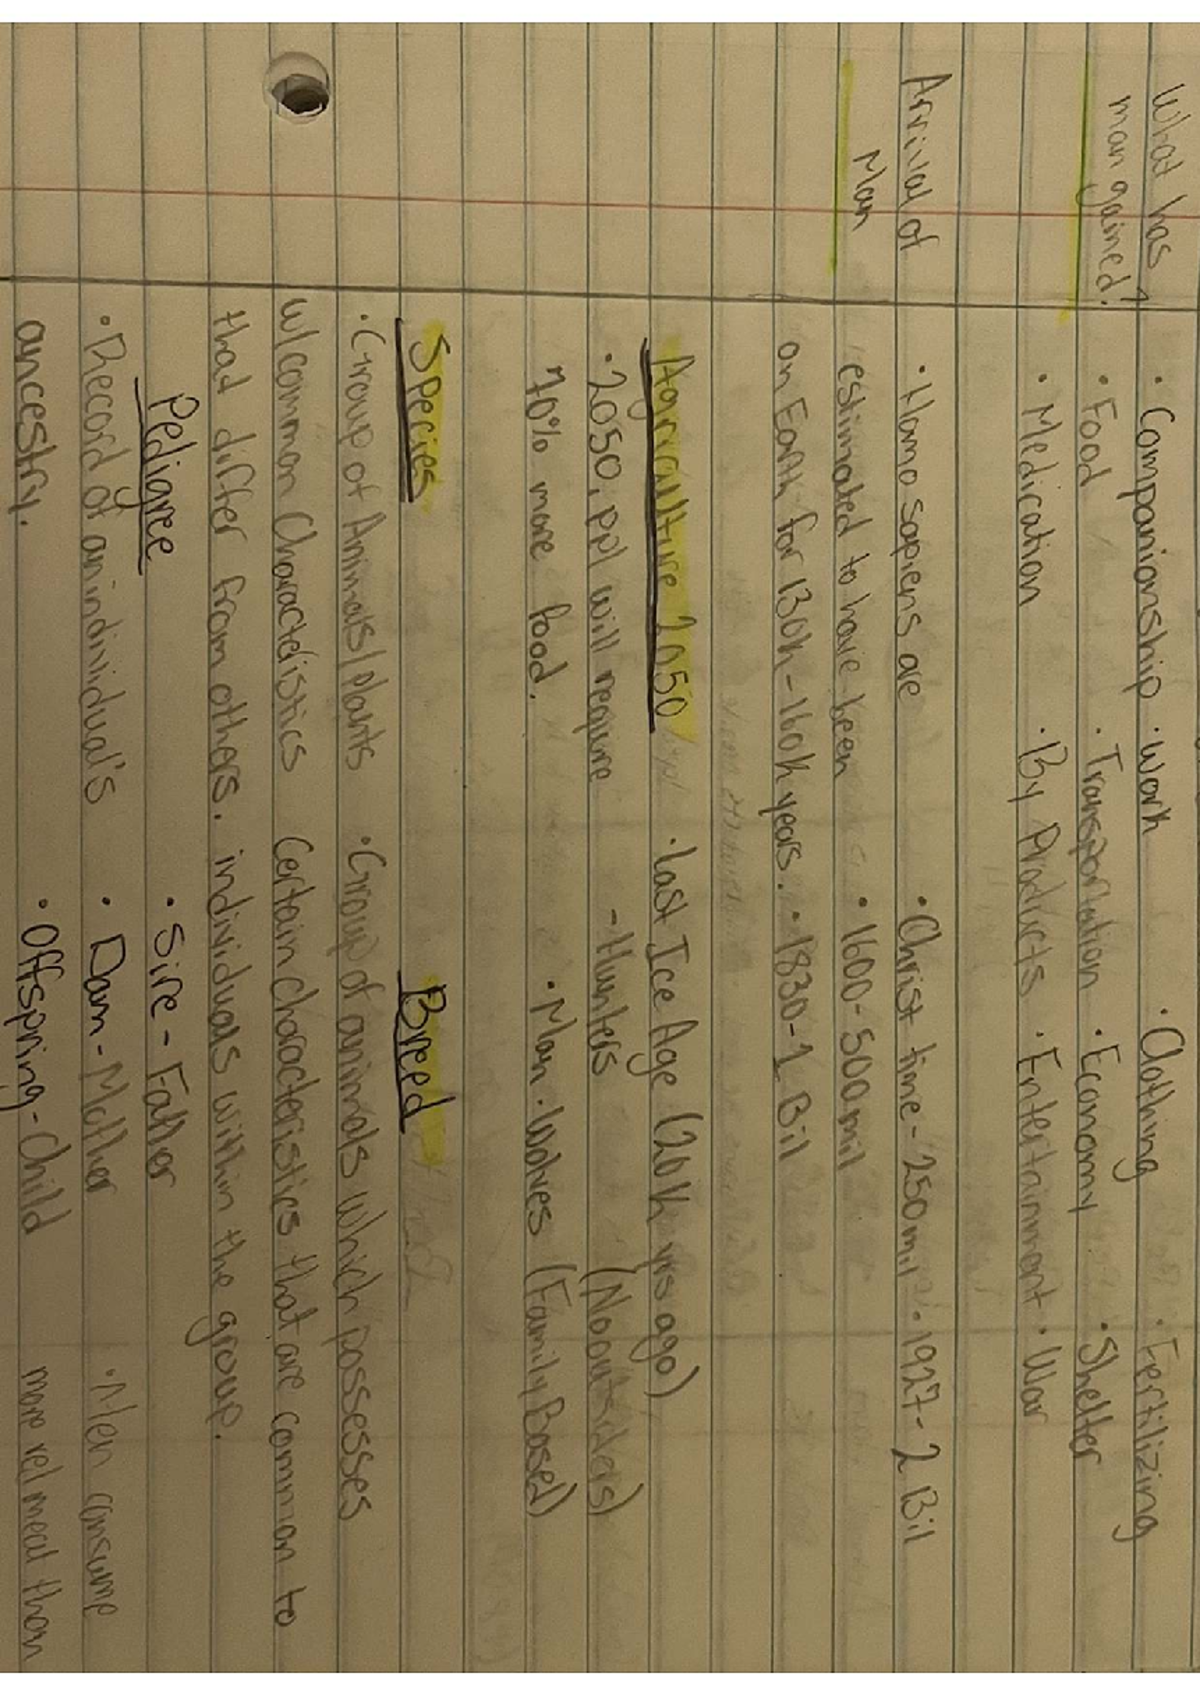 What has
man gained?
• Companionship • Work • Clothing • Fertilizing
• Food • Transportation • Economy • Shelter
• Medication • By Products • Entertainment • War
Arrival of
Man
• Homo sapiens are • Christ time - 250 mil • 1927 - 2 Bil
estimated to have been • 1600 - 500 mil
on Earth for 130k - 160k years. • 1830 - 1 Bil
Agriculture 2050 • Last Ice Age (20k yrs ago)
• 2050, ppl will require - Hunters (No outsiders)
70% more food. • Man • Wolves (Family Based)
Species Breed
• Group of Animals/plants • Group of animals which possesses
w/common Characteristics Certain characteristics that are common to
that differ from others. individuals within the group.
Pedigree • Sire - Father
• Record of an individual's • Dam - Mother • Men consume
ancestry. • Offspring - Child more red meat than